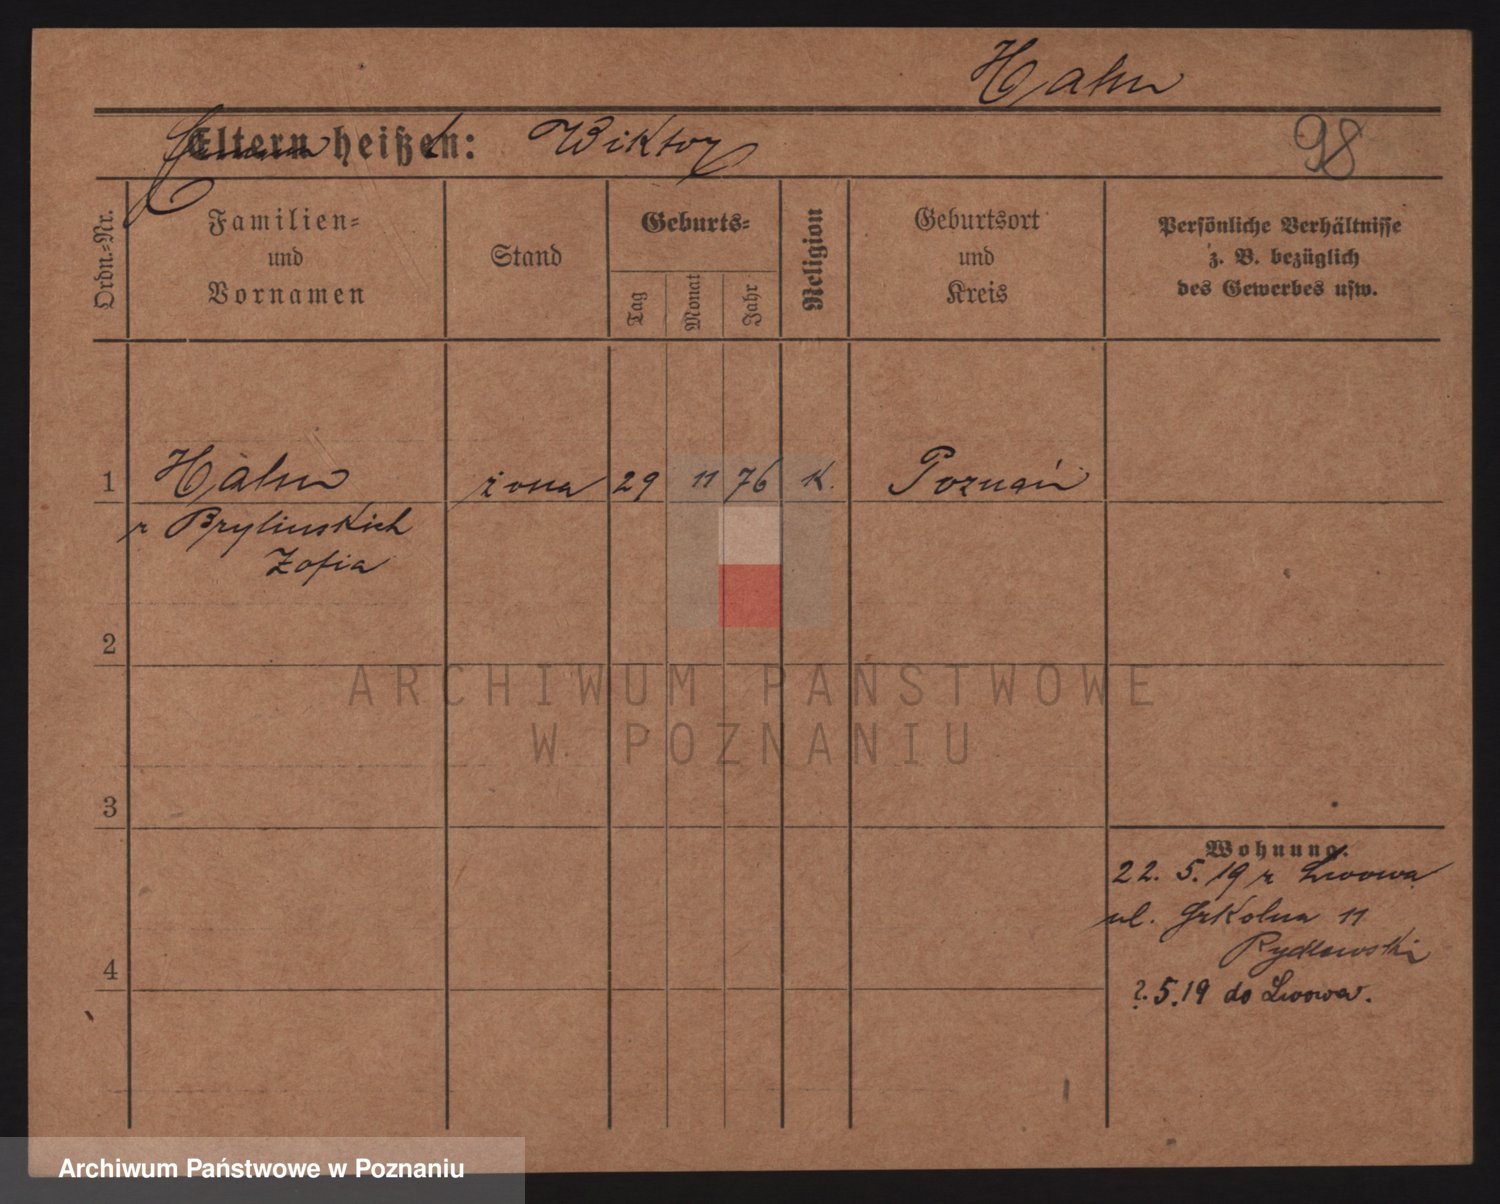 Hahn
Eltern heißen: Wiktor
98
Ordn.-Nr.
Familien-
und
Vornamen
Stand
Geburts-
Tag
Monat
Jahr
Religion
Geburtsort
und
Kreis
Persönliche Verhältnisse
z. B. bezüglich
des Gewerbes usw.
1
Hahn
żona
29
11
76
K.
Poznań
z Brylinskich
Zofia
2
ARCHIWUM PAŃSTWOWE
W POZNANIU
3
Wohnung.
22. 5. 19 z Lwowa
ul. Szkolna 11
Rydlewski
4
?.5.19 do Lwowa.
Archiwum Państwowe w Poznaniu